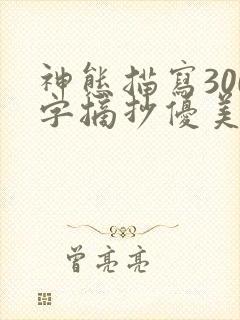 神態描寫300
字摘抄優美
曾亮亮